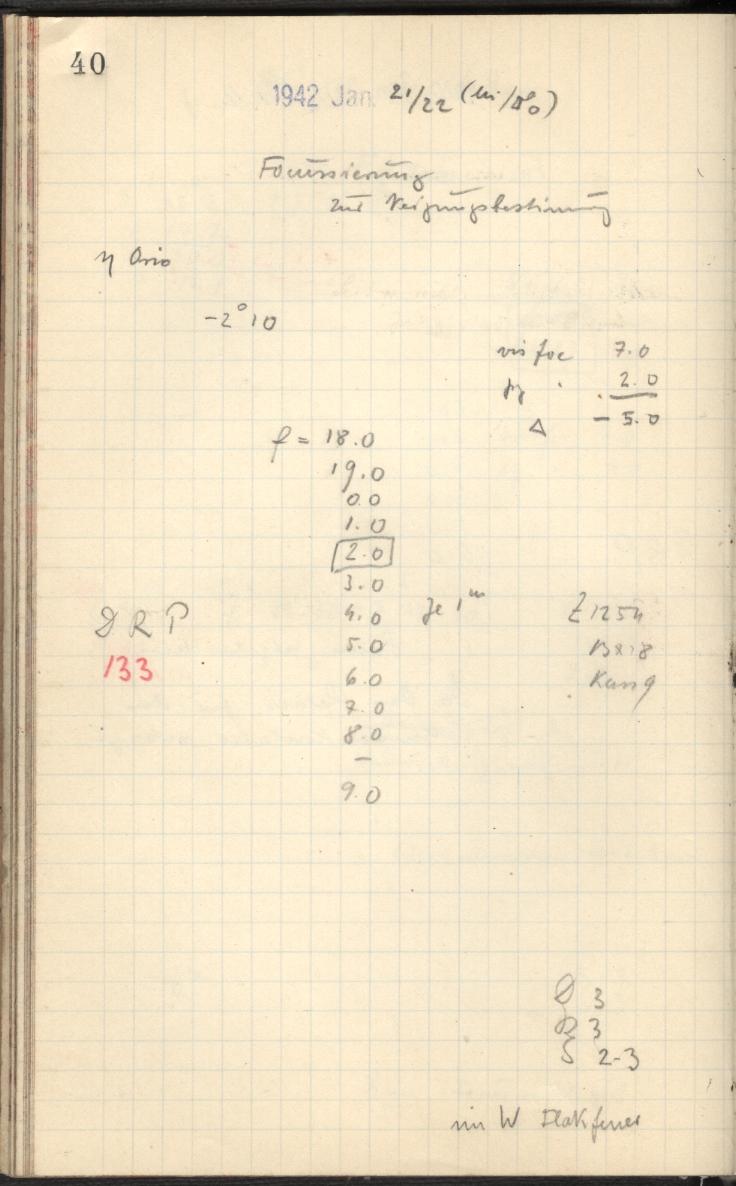 40
1942 Jan. 21/22 (Mi/Do)
Focussierung
zur Neigungsbestimmung
η Orio
-2° 10
vis foc 7.0
pg " 2.0
Δ - 5.0
f = 18.0
19.0
0.0
1.0
2.0
3.0
4.0 je 1m
5.0
6.0
7.0
8.0
–
9.0
DRP
133
Z 1254
B × 18
Kass 9
D 3
R 3
S 2-3
im W Flakfeuer